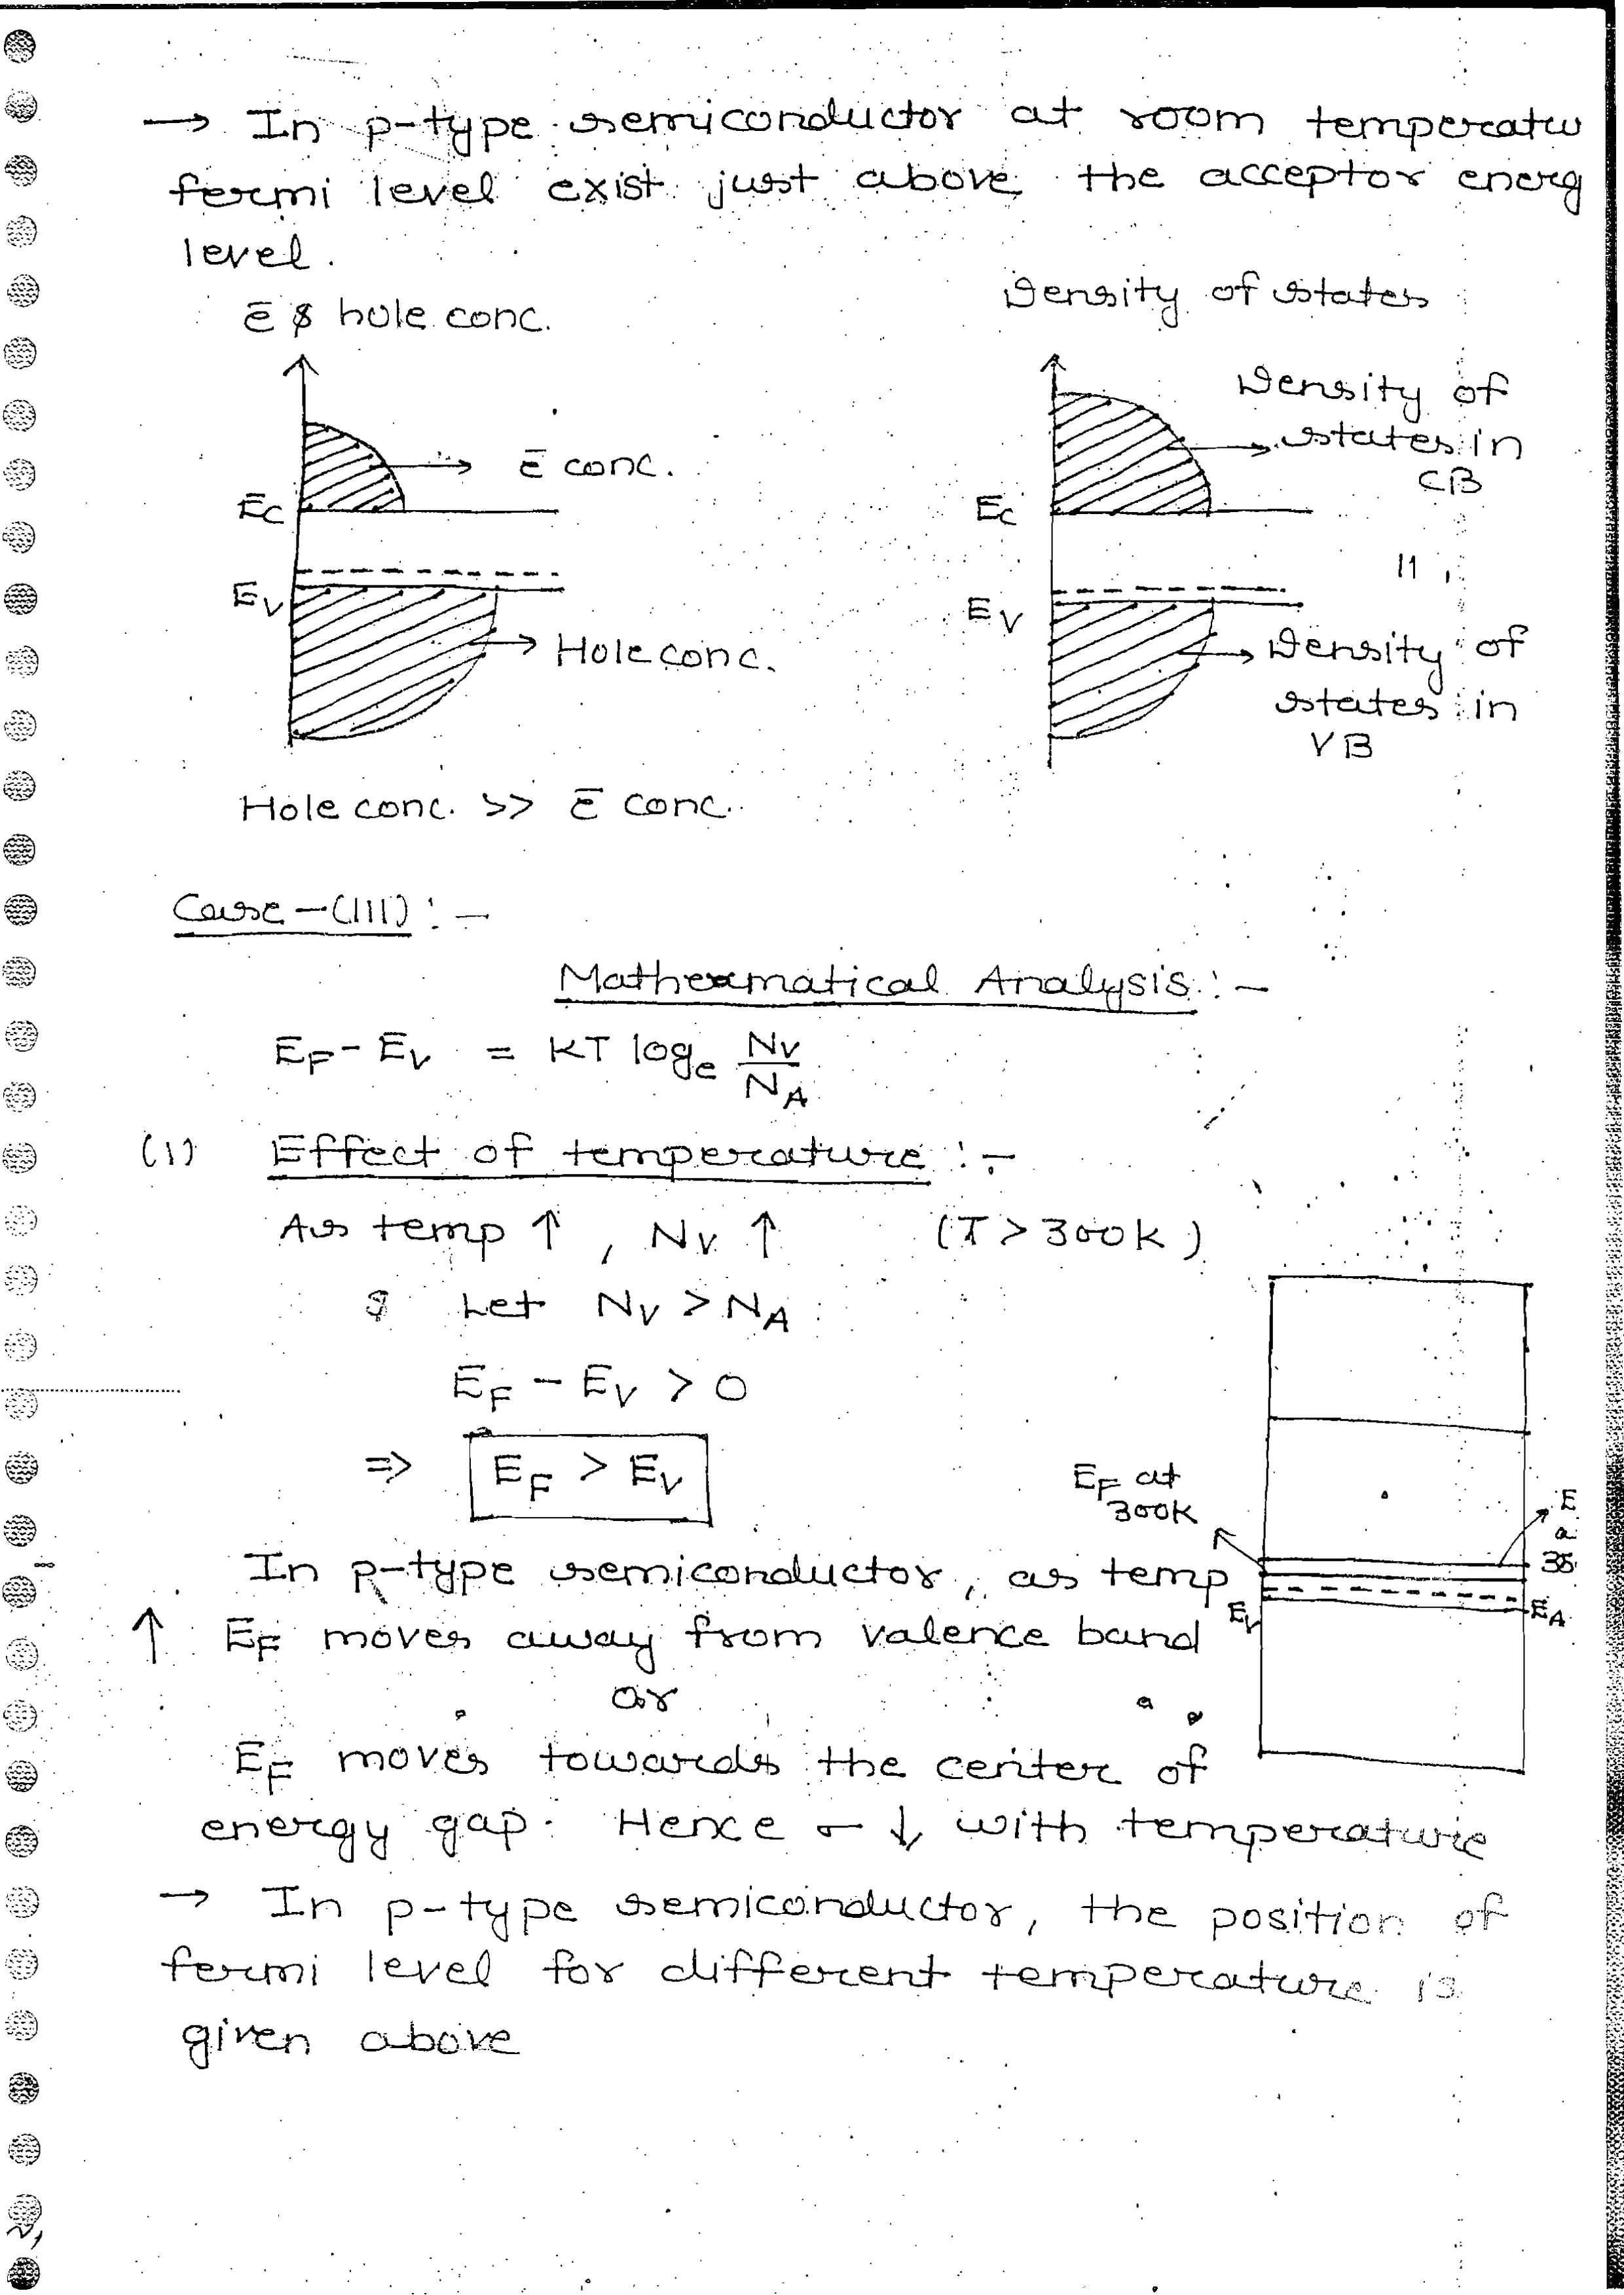 → In p-type semiconductor at room temperatu
fermi level exist just above the acceptor energ
level.
ē & hole conc.
Density of states
ē conc.
Ec
Ev
Hole conc.
Density of
states in
CB
Ec
11
Ev
Density of
states in
VB
Hole conc. >> ē conc.
Case-(III) :-
Mathematical Analysis :-
EF - EV = KT loge NV/NA
(1) Effect of temperature :-
As temp ↑, NV ↑ (T > 300K)
& Let NV > NA
EF - EV > 0
⇒ EF > EV
EF at
300K
E
a
35
EV
EA
In p-type semiconductor, as temp
↑ EF moves away from valence band
or
EF moves towards the center of
energy gap. Hence σ ↓ with temperature
→ In p-type semiconductor, the position of
fermi level for different temperature is
given above